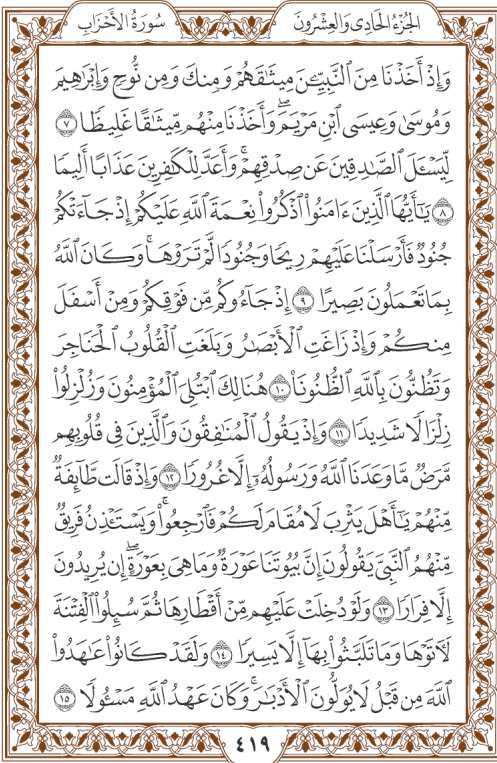 الجُزْءُ الحَادِى وَالعِشْرُونَ
سُورَةُ الأَحْزَابِ
وَإِذْ أَخَذْنَا مِنَ ٱلنَّبِيِّـۧنَ مِيثَٰقَهُمْ وَمِنكَ وَمِن نُّوحٍ وَإِبْرَٰهِيمَ
وَمُوسَىٰ وَعِيسَى ٱبْنِ مَرْيَمَۖ وَأَخَذْنَا مِنْهُم مِّيثَٰقًا غَلِيظًا ٧
لِّيَسْـَٔلَ ٱلصَّٰدِقِينَ عَن صِدْقِهِمْۚ وَأَعَدَّ لِلْكَٰفِرِينَ عَذَابًا أَلِيمًا
٨ يَٰٓأَيُّهَا ٱلَّذِينَ ءَامَنُوا۟ ٱذْكُرُوا۟ نِعْمَةَ ٱللَّهِ عَلَيْكُمْ إِذْ جَآءَتْكُمْ
جُنُودٌ فَأَرْسَلْنَا عَلَيْهِمْ رِيحًا وَجُنُودًا لَّمْ تَرَوْهَاۚ وَكَانَ ٱللَّهُ
بِمَا تَعْمَلُونَ بَصِيرًا ٩ إِذْ جَآءُوكُم مِّن فَوْقِكُمْ وَمِنْ أَسْفَلَ
مِنكُمْ وَإِذْ زَاغَتِ ٱلْأَبْصَٰرُ وَبَلَغَتِ ٱلْقُلُوبُ ٱلْحَنَاجِرَ
وَتَظُنُّونَ بِٱللَّهِ ٱلظُّنُونَا۠ ١٠ هُنَالِكَ ٱبْتُلِىَ ٱلْمُؤْمِنُونَ وَزُلْزِلُوا۟
زِلْزَالًا شَدِيدًا ١١ وَإِذْ يَقُولُ ٱلْمُنَٰفِقُونَ وَٱلَّذِينَ فِى قُلُوبِهِم
مَّرَضٌ مَّا وَعَدَنَا ٱللَّهُ وَرَسُولُهُۥٓ إِلَّا غُرُورًا ١٢ وَإِذْ قَالَت طَّآئِفَةٌ
مِّنْهُمْ يَٰٓأَهْلَ يَثْرِبَ لَا مُقَامَ لَكُمْ فَٱرْجِعُوا۟ۚ وَيَسْتَـْٔذِنُ فَرِيقٌ
مِّنْهُمُ ٱلنَّبِىَّ يَقُولُونَ إِنَّ بُيُوتَنَا عَوْرَةٌ وَمَا هِىَ بِعَوْرَةٍۖ إِن يُرِيدُونَ
إِلَّا فِرَارًا ١٣ وَلَوْ دُخِلَتْ عَلَيْهِم مِّنْ أَقْطَارِهَا ثُمَّ سُئِلُوا۟ ٱلْفِتْنَةَ
لَءَاتَوْهَا وَمَا تَلَبَّثُوا۟ بِهَآ إِلَّا يَسِيرًا ١٤ وَلَقَدْ كَانُوا۟ عَٰهَدُوا۟
ٱللَّهَ مِن قَبْلُ لَا يُوَلُّونَ ٱلْأَدْبَٰرَۚ وَكَانَ عَهْدُ ٱللَّهِ مَسْـُٔولًا ١٥
٤١٩